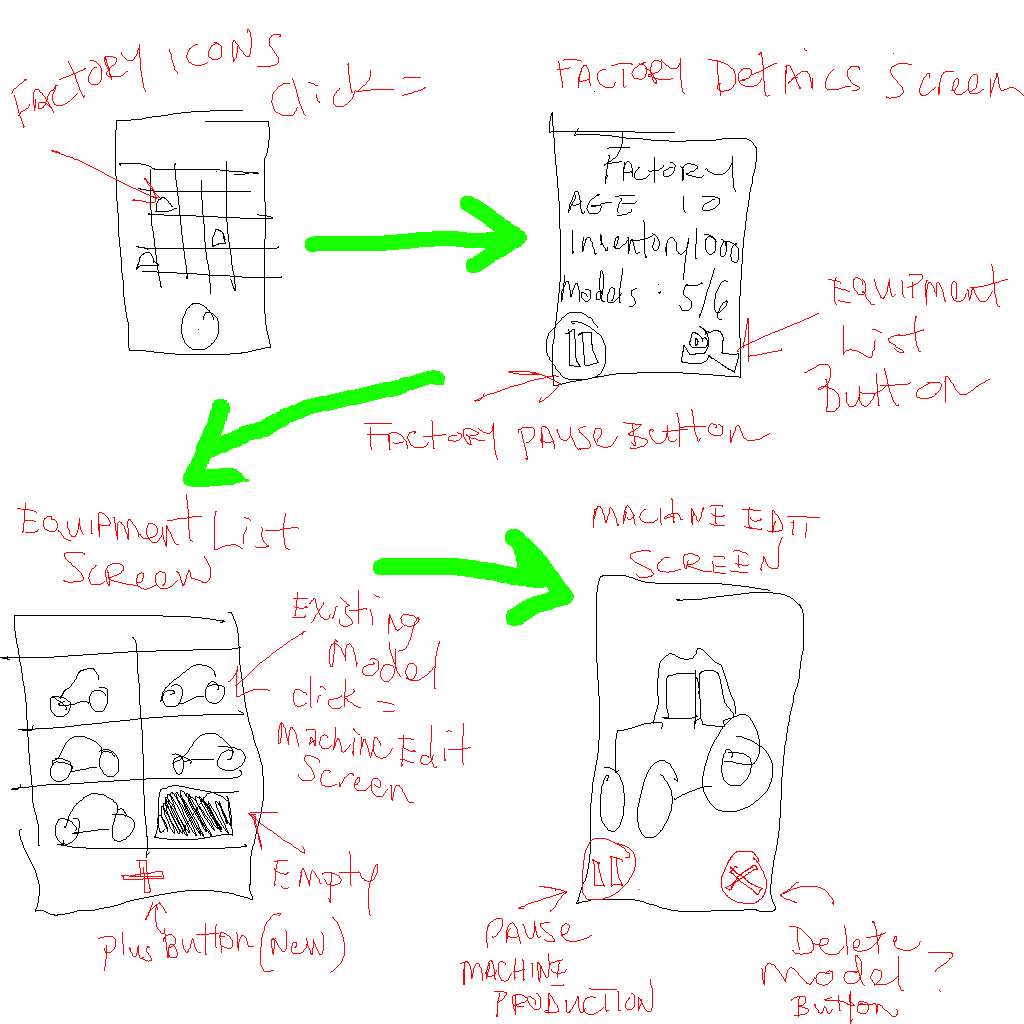 FACTORY ICONS
Click =
FACTORY DetAiCS Screen
FACTORY
AGE 10
Inventory 1000
Models : 5/6
EQUIPMENT
LiSt
Button
FACTORY PAUSE Button
EQUIPMENT LiST
SCREEN
MACHINE EDIT
SCREEN
Existing
Model
click =
Machine Edit
Screen
Empty
Plus Button (New)
PAUSE
MACHINE
PRODUCTION
Delete
Model ?
Button